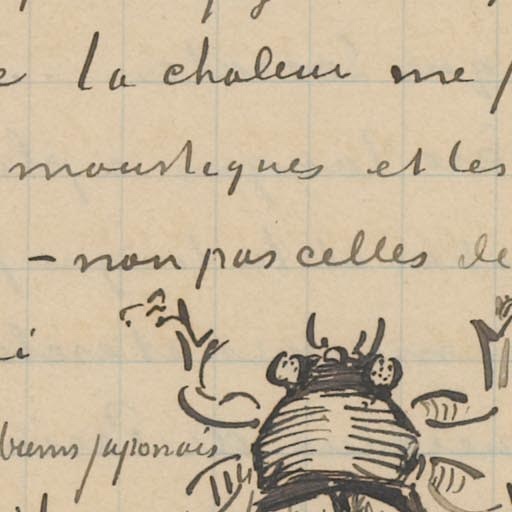 la chaleur me
moustiques et les
– non pas celles de
japonais